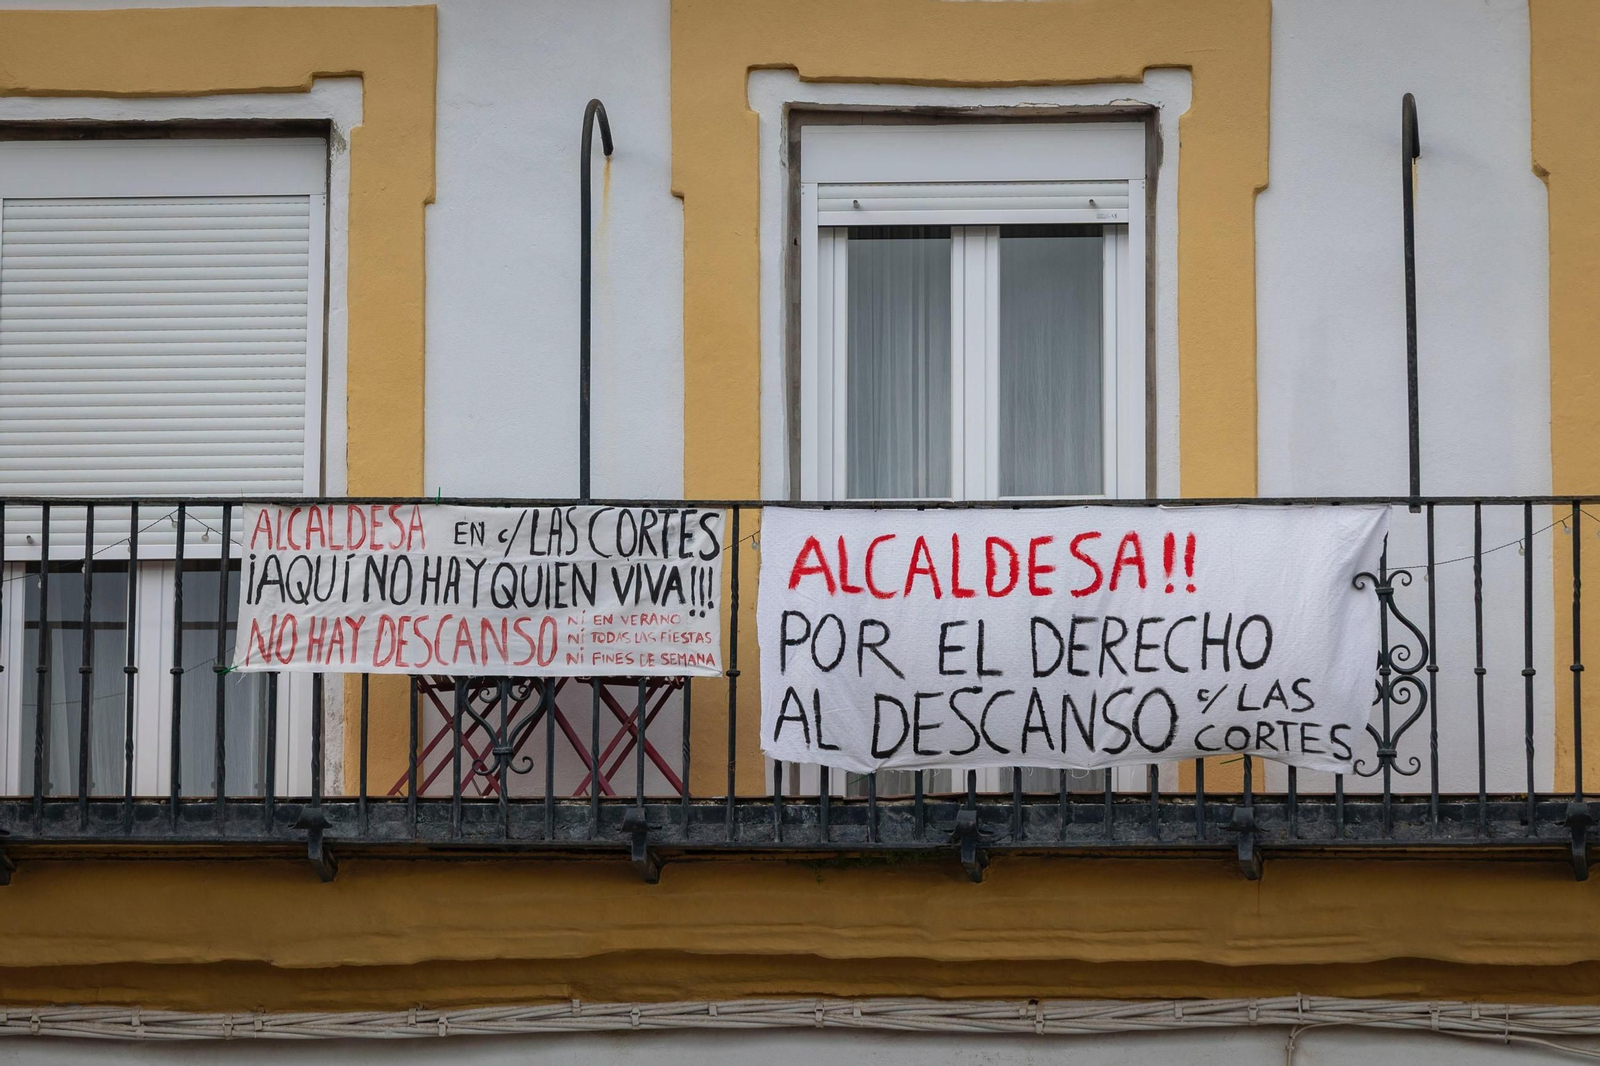 ALCALDESA EN c/ LAS CORTES
¡AQUÍ NO HAY QUIEN VIVA!!!
NO HAY DESCANSO
NI EN VERANO
NI TODAS LAS FIESTAS
NI FINES DE SEMANA
ALCALDESA!!
POR EL DERECHO
AL DESCANSO c/ LAS
CORTES